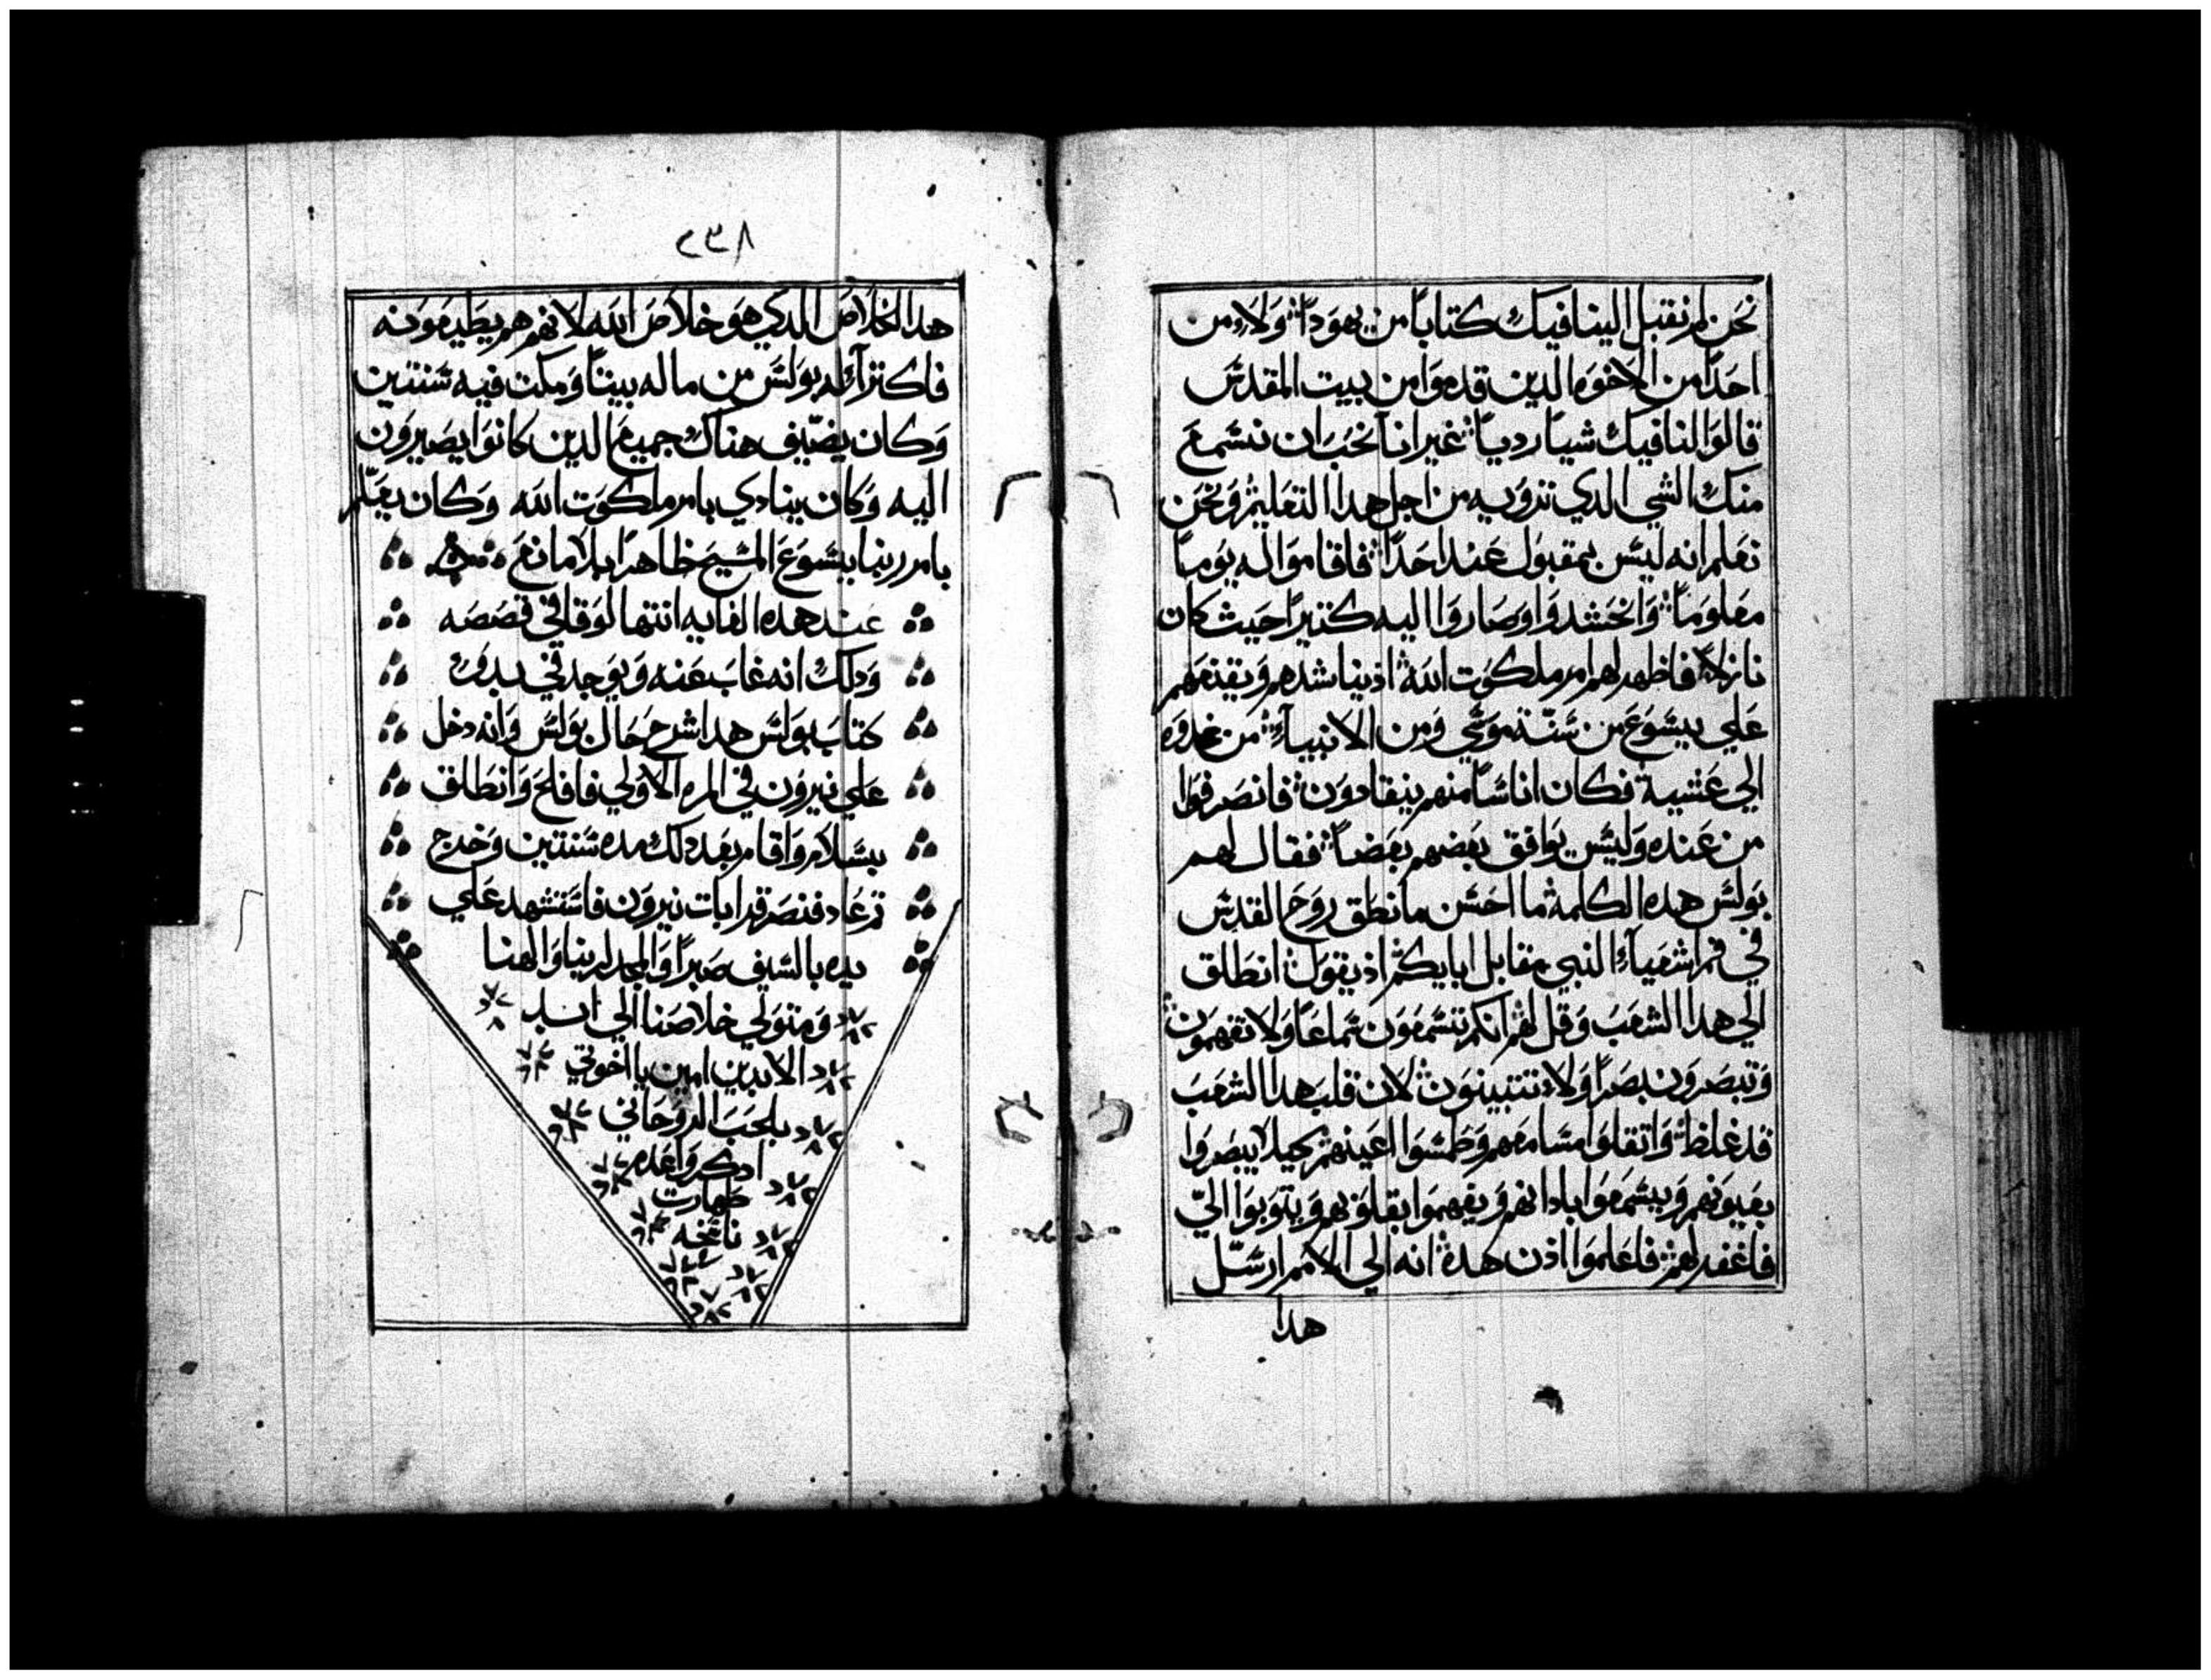 نحن لم نقبل الينا فيك كتاباً من يهودا ولا من
احداً من الاخوه الدين قدموا من بيت المقدس
قالوا لنا فيك شياً ردياً غير انا نحب ان نسمع
منك الشي الدي تروي به من اجل هدا التعليم ونحن
نعلم انه ليس بمقبول عند احداً فاقاموا له يوماً
معلوماً وانحشدوا وصاروا اليه كثيراً حيث كان
نازلاً فاظهر لهم امر ملكوت الله اذ يناشدهم ويقنعهم
علي يسوع من سنّة موسي ومن الانبيآء من غدوه
الي عشية فكان اناساً منهم ينقادون فانصرفوا
من عنده وليس يوافق بعضهم بعضاً فقال لهم
بولس هده الكلمة ما احسن ما نطق روح القدس
في فم اشعيآء النبي مقابل ابايكم اذ يقول انطلق
الي هدا الشعب وقل لهم انكم تسمعون سماعاً ولا تفهمون
وتبصرون بصراً ولا تتبينون لان قلب هدا الشعب
قد غلظ واتقلوا مسامعهم وطمسوا اعينهم بحيلا يبصروا
بعيونهم ويسمعوا بادانهم ويفهموا بقلوبهم ويتوبوا اليّ
فاغفر لهم فاعلموا اذن هدة انه الي الامم ارسّل
هدا
٢٣٨
هدا الخلاص الدي هو خلاص الله لانهم هم يطيعونه
فاكترآ له بولس من ماله بيتاً ومكت فيه سنتين
وكان يضيّف هناك جميع الدين كانوا يصيرون
اليه وكان ينادي بامر ملكوت الله وكان يعلّم
بامر ربنا يسوع المسيح ظاهراً بلا مانع
عند هده الغايه انتها لوقا في قصصه
ودلك انه غاب عنه ويوجد في
كتاب بولس هدا شرح حال بولس وانه دخل
علي نيرون في المره الاولي فافلح وانطلق
بسلام واقام بعد دلك مده سنتين وخرج
تم عاد فنصر قرابات نيرون فاستشهد علي
يده بالسيف صبراً والمجد لربنا والهنا
ومتولي خلاصنا الي ابد
الابدين امين يا اخوتي
بالحب الروحاني
ادكروا عدم
طهارت
ناسخه